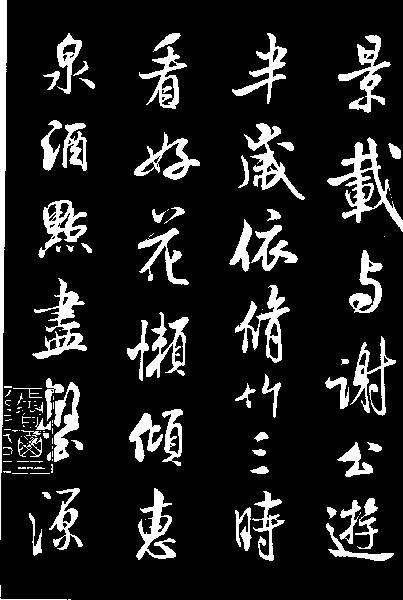 景載与謝公遊
半歲依脩竹三時
看好花懶傾惠
泉酒點盡壑源